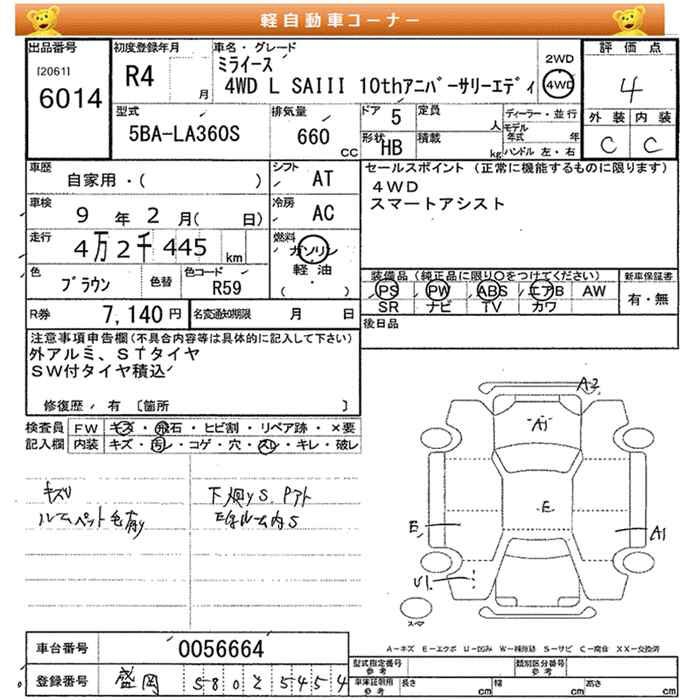 軽自動車コーナー
出品番号 初度登録年月 車名・グレード 2WD 評価点
[2061] 6014 R4 月 ミライース 4WD 4
4WD L SAIII 10thアニバーサリーエディ
外装 内装
C C
型式 排気量 ドア 5 定員 人 ディーラー・並行
5BA-LA360S 660 cc モデル年式 年
形状 HB 積載 kg ハンドル 左・右
車歴 シフト セールスポイント (正常に機能するものに限ります)
自家用・( ) AT 4WD
車検 冷房 スマートアシスト
9 年 2 月( 日) AC
走行 燃料
4万2千445 km ガソリン
軽油
・
( )
色 色替 色コード 装備品 (純正品に限り○をつけてください) 新車保証書
ブラウン R59 PS PW ABS エアB AW 有・無
SR ナビ TV カワ
R券 7,140円 名変通知期限 月 日 後日品
注意事項申告欄(不具合内容等は具体的に記入して下さい)
外アルミ、STタイヤ
SW付タイヤ積込
修復歴 有 [箇所 ]
検査員 FW キズ・飛石・ヒビ割・リペア跡・×要
記入欄 内装 キズ・汚レ・コゲ・穴・スレ・キレ・破レ
A2
A1
E
E
A1
U1
キズリ 下廻りS
スペア
A-キズ E-エクボ U-凹み W-補修跡 S-サビ C-腐食 XX-交換済
車台番号 0056664
型式指定番号 参考 類別区分番号 参考
登録番号 盛岡 580 と 5454
車庫証明用 参考 長さ cm 幅 cm 高さ cm